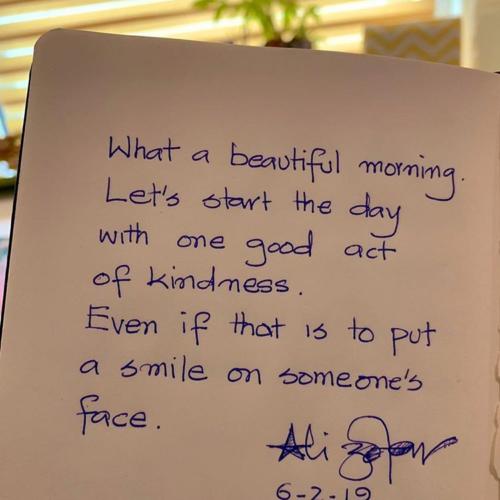 What a beautiful morning.
Let's start the day
with one good act
of kindness.
Even if that is to put
a smile on someone's
face.
Ali Zafar
6-2-19